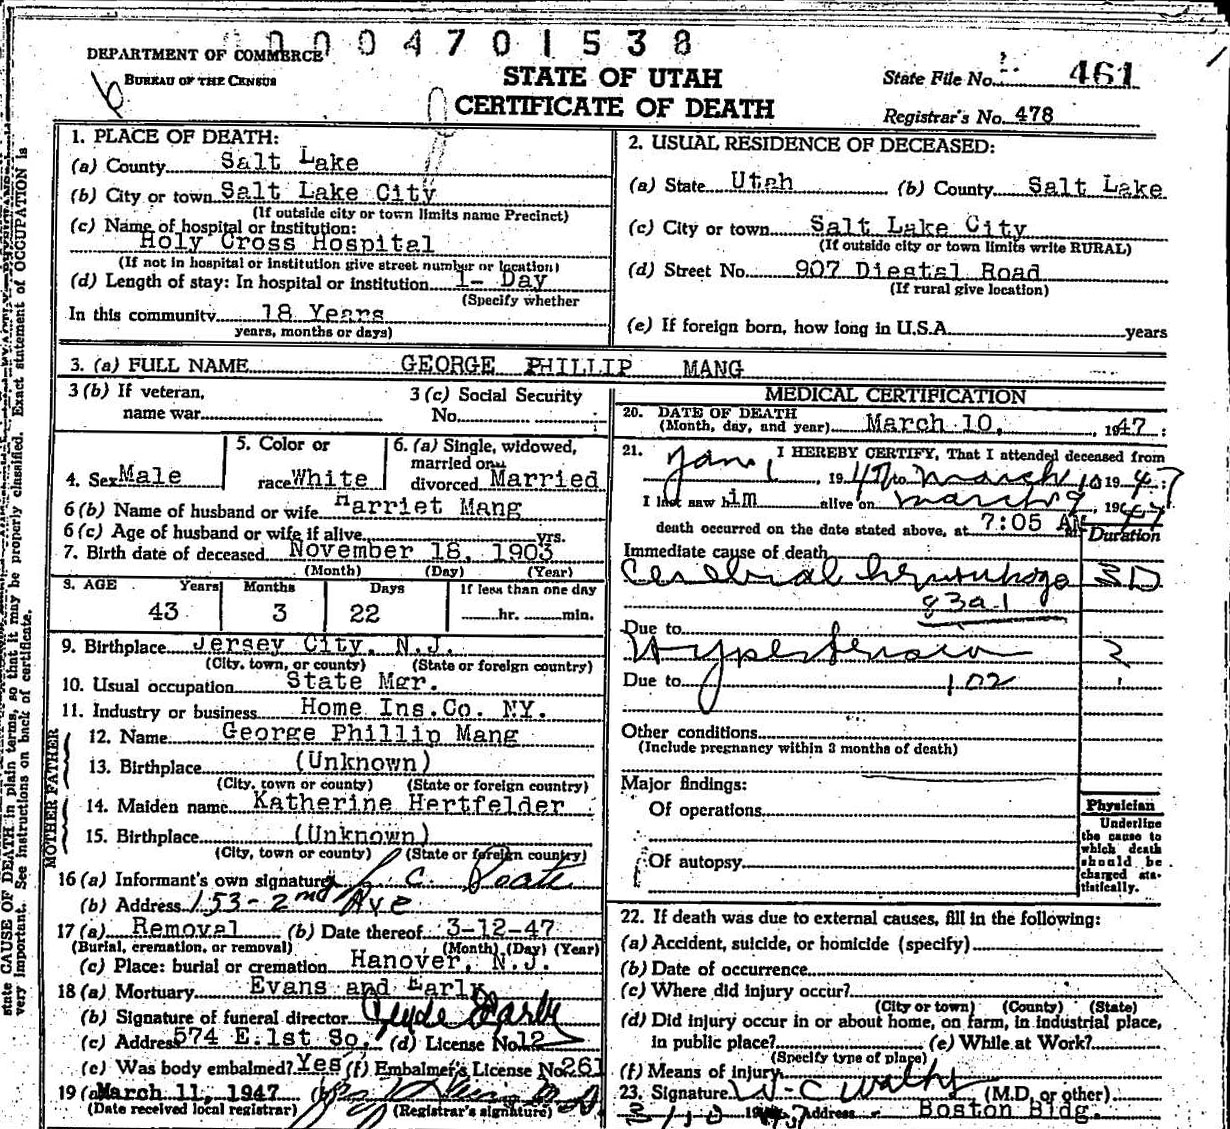 0004701538
DEPARTMENT OF COMMERCE
BUREAU OF THE CENSUS
STATE OF UTAH
CERTIFICATE OF DEATH
State File No. 461
Registrar's No. 478
1. PLACE OF DEATH:
(a) County Salt Lake
(b) City or town Salt Lake City
(If outside city or town limits name Precinct)
(c) Name of hospital or institution:
Holy Cross Hospital
(If not in hospital or institution give street number or location)
(d) Length of stay: In hospital or institution 1- Day
(Specify whether
In this community 18 Years
years, months or days)
2. USUAL RESIDENCE OF DECEASED:
(a) State Utah (b) County Salt Lake
(c) City or town Salt Lake City
(If outside city or town limits write RURAL)
(d) Street No. 907 Diestel Road
(If rural give location)
(e) If foreign born, how long in U.S.A. years
3. (a) FULL NAME GEORGE PHILLIP MANG
3 (b) If veteran,
name war
3 (c) Social Security
No.
4. Sex Male
5. Color or
race White
6. (a) Single, widowed,
married or
divorced Married
6 (b) Name of husband or wife Harriet Mang
6 (c) Age of husband or wife if alive yrs.
7. Birth date of deceased November 18, 1903
(Month) (Day) (Year)
8. AGE Years Months Days If less than one day
43 3 22 hr. min.
9. Birthplace Jersey City, N.J.
(City, town, or county) (State or foreign country)
10. Usual occupation State Mgr.
11. Industry or business Home Ins.Co. NY.
FATHER
12. Name George Phillip Mang
13. Birthplace (Unknown)
(City, town or county) (State or foreign country)
MOTHER
14. Maiden name Katherine Hertfelder
15. Birthplace (Unknown)
(City, town or county) (State or foreign country)
16 (a) Informant's own signature C.
(b) Address 153-2nd Ave
17 (a) Removal (b) Date thereof 3-12-47
(Burial, cremation, or removal) (Month) (Day) (Year)
(c) Place: burial or cremation Hanover, N.J.
18 (a) Mortuary Evans and Early
(b) Signature of funeral director Clyde Early
(c) Address 574 E.1st So. (d) License No. 12
(e) Was body embalmed? Yes (f) Embalmer's License No. 261
19 (a) March 11, 1947 (b)
(Date received local registrar) (Registrar's signature)
MEDICAL CERTIFICATION
20. DATE OF DEATH
(Month, day, and year) March 10, 1947
21. I HEREBY CERTIFY, That I attended deceased from
Jan 1, 1947 to March 10 1947
I last saw him alive on March 9, 1947
death occurred on the date stated above, at 7:05 AM
Duration
Immediate cause of death
Cerebral hemorrhage 3 D
83a1
Due to
Hypertension ?
Due to 102
Other conditions
(Include pregnancy within 3 months of death)
Major findings:
Of operations
Of autopsy
Physician
Underline
the cause to
which death
should be
charged sta-
tistically.
22. If death was due to external causes, fill in the following:
(a) Accident, suicide, or homicide (specify)
(b) Date of occurrence
(c) Where did injury occur?
(City or town) (County) (State)
(d) Did injury occur in or about home, on farm, in industrial place,
in public place? (e) While at Work?
(Specify type of place)
(f) Means of injury
23. Signature W-C (M.D. or other)
Address Boston Bldg.
state CAUSE OF DEATH in plain terms, so that it may be properly classified. Exact statement of OCCUPATION is
very important. See instructions on back of certificate.